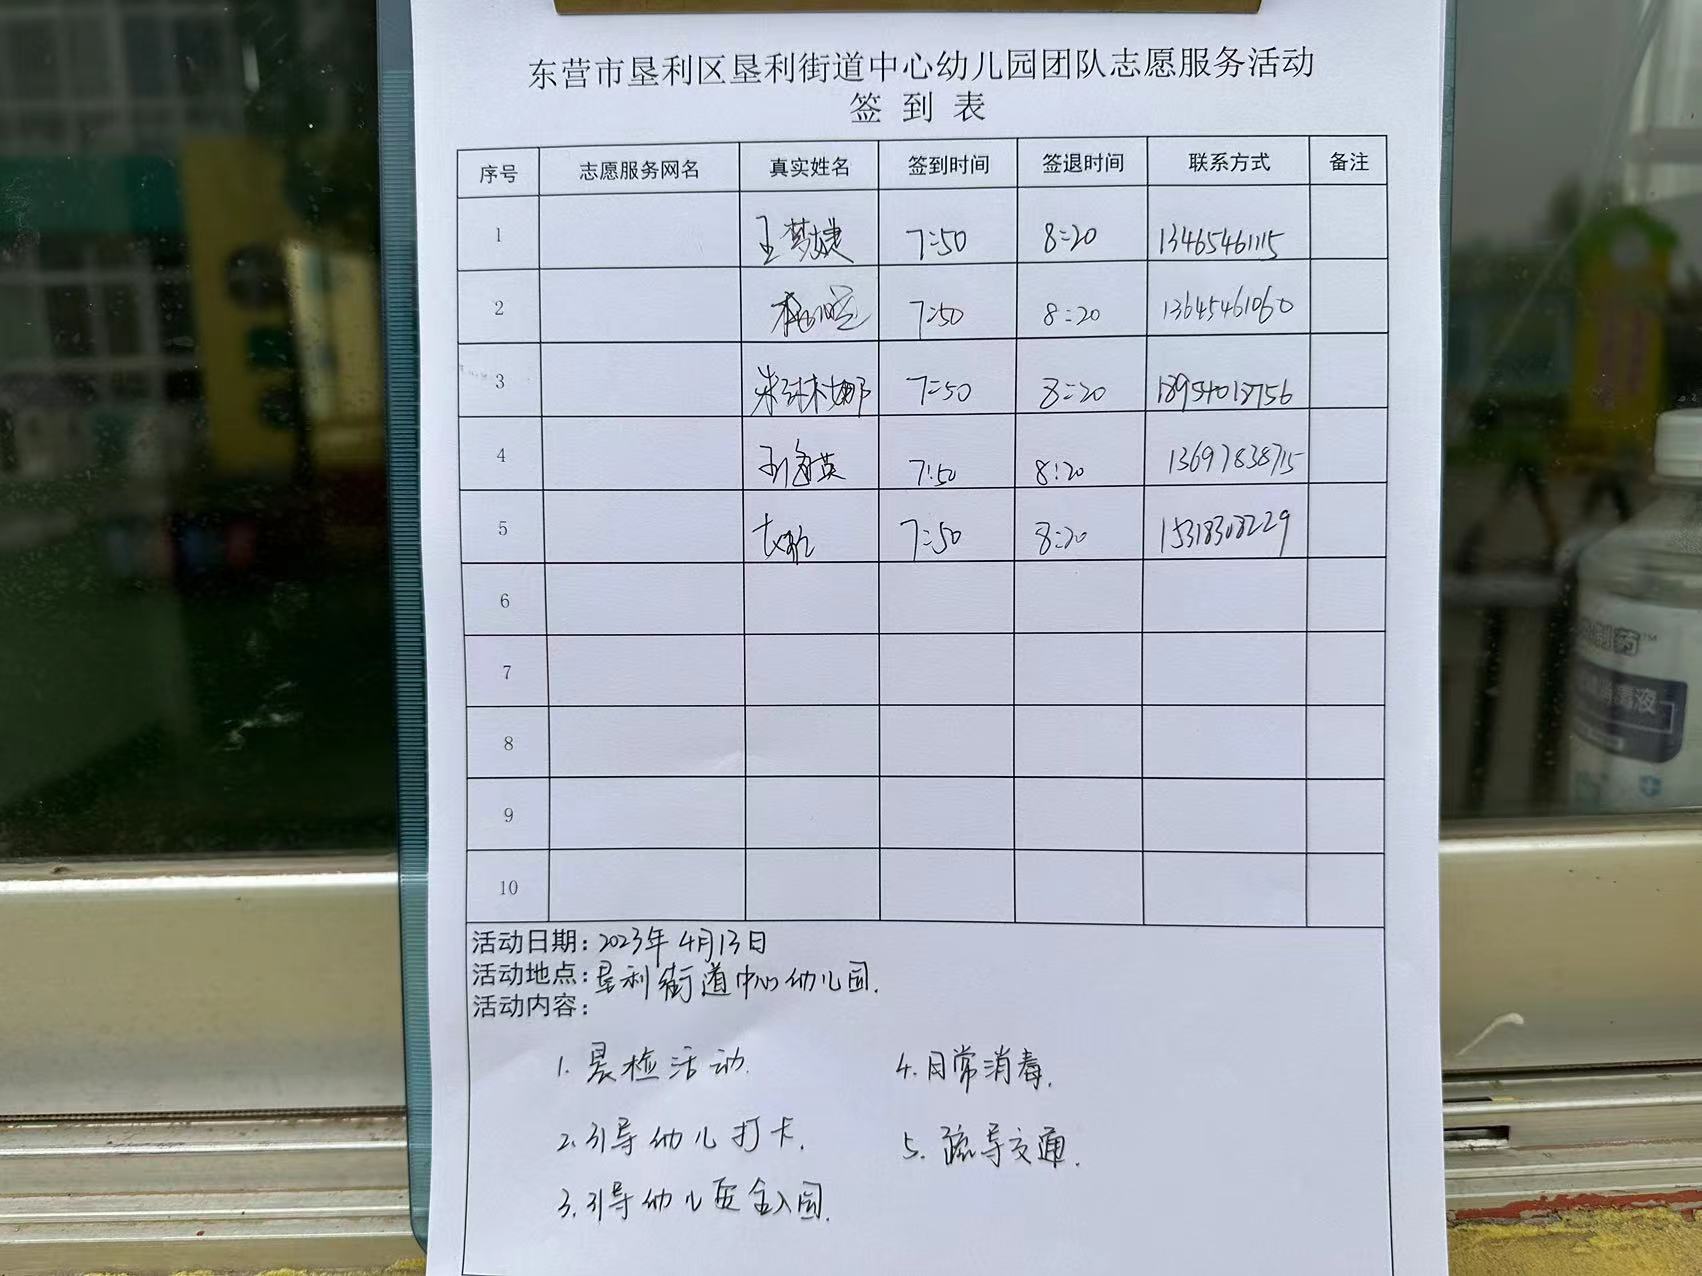 东营市垦利区垦利街道中心幼儿园团队志愿服务活动
签到表
序号 志愿服务网名 真实姓名 签到时间 签退时间 联系方式 备注
1 王梦婕 7:50 8:20 13465461115
2 7:50 8:20 13645461060
3 朱琳娜 7:50 8:20 18954013756
4 7:50 8:20 13697838715
5 7:50 8:20 15318308229
6
7
8
9
10
活动日期：2023年4月13日
活动地点：垦利街道中心幼儿园.
活动内容：
1. 晨检活动. 4. 日常消毒.
2. 引导幼儿打卡. 5. 疏导交通.
3. 引导幼儿安全入园.
制药™
毒液